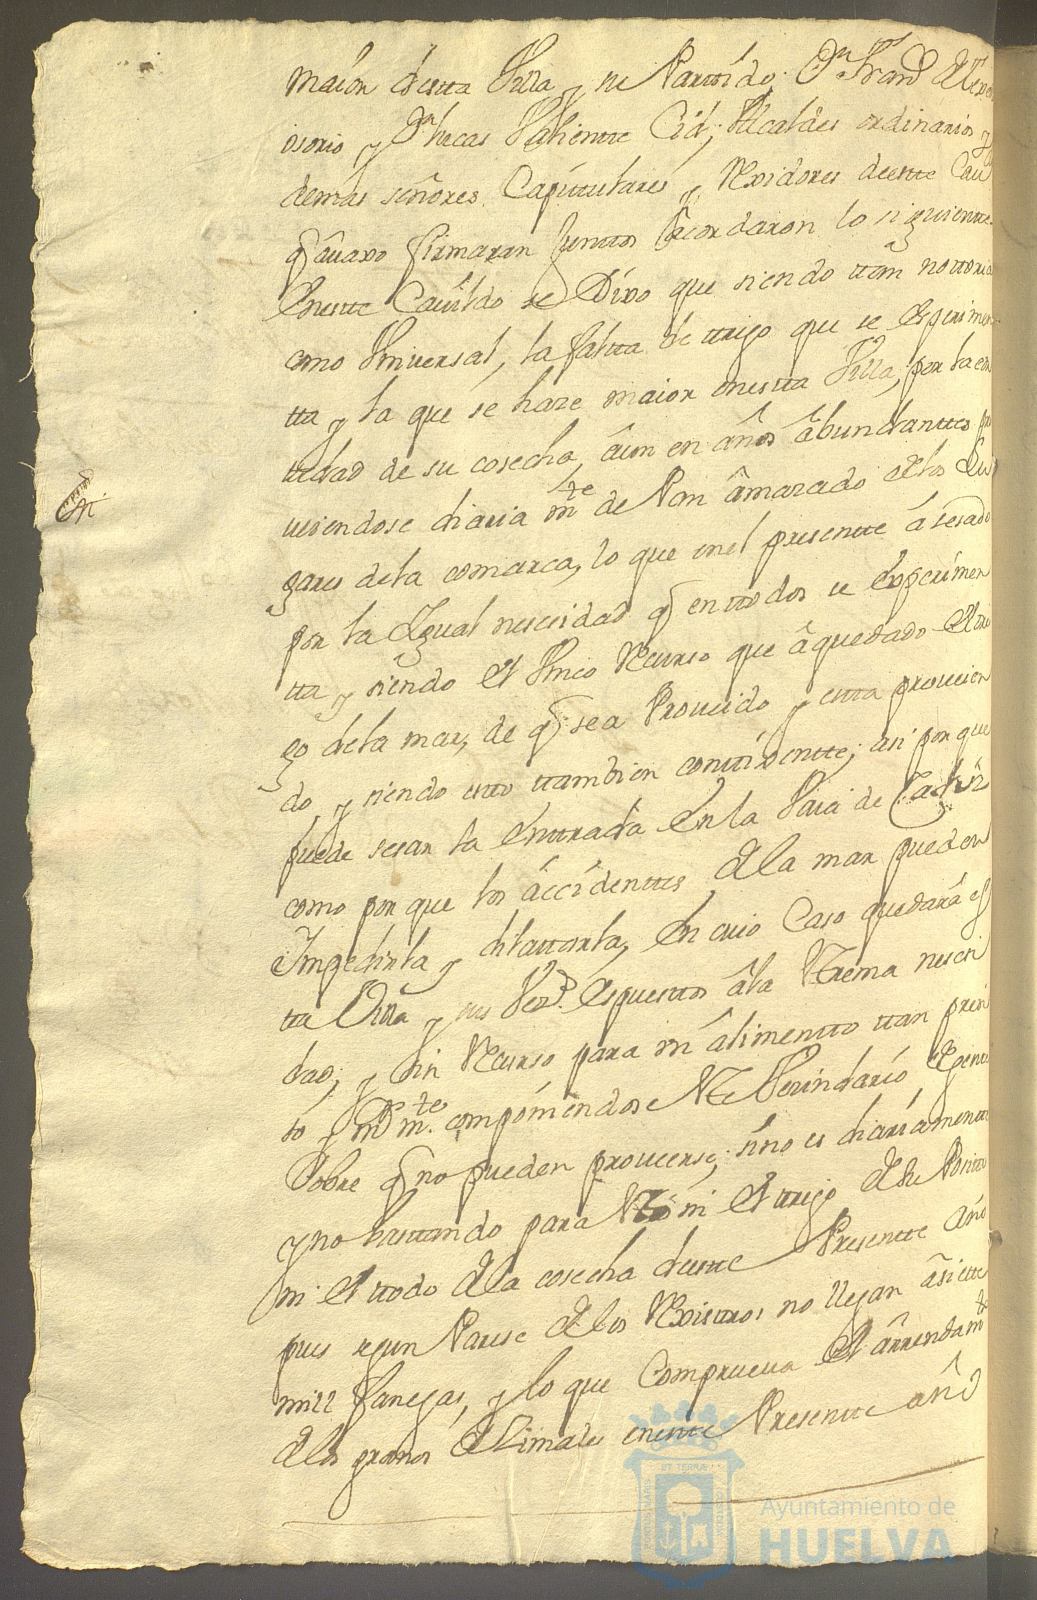 maion desta Villa y su Partido. Dn. Franco
osorio y Dn. lucas Valiente Cid; Alcaldes ordinarios y
demás señores Capitulares y Rexidores deeste Cau
q âuaxo firmaran Junttos Acordaron lo siguiente.
Eneste Cauildo se Dixo que siendo ttan nottoria
como Vniversal, la faltta de ttrigo que se Esperimen
tta y la que se haze maior enesta Villa, por la cor
ttedad de su cosecha, âun en años âbundanttes
uiendose diaria mte. de Pan âmazado de los Lu
gares dela comarca, lo que enel presente â sesado
por la Igual nesesidad q en ttodos se Experimen
tta y siendo el Vnico Recurso que â quedado
go dela mar, de q se a Proueido y esta proueien
do, y siendo esto ttambien conttinxentte; asi por que
puede sesar la Enttrada En la Vaia de Cadiz
como por que los âccidenttes de la mar pueden
Impedirla y dilattarla, En cuio Caso quedará es
tta Villa y sus Vezos. Espuestos â la Extrema nesesi
dad; y sin Recurso para un âlimentto ttan presi
so y mte. componiendose el Vezindario, de jente
Pobre q no pueden proueerse, sino es diariamente
y no basttando para ello ni el ttrigo de su Posito
ni el ttodo de la cosecha deeste Presentte año
pues segun Parese de los Rexistros no llegan â siette
mill fanegas, y lo que Comprueua el ârrendamto.
de los granos dezimales eneste Presentte año
Ayuntamiento de
HUELVA